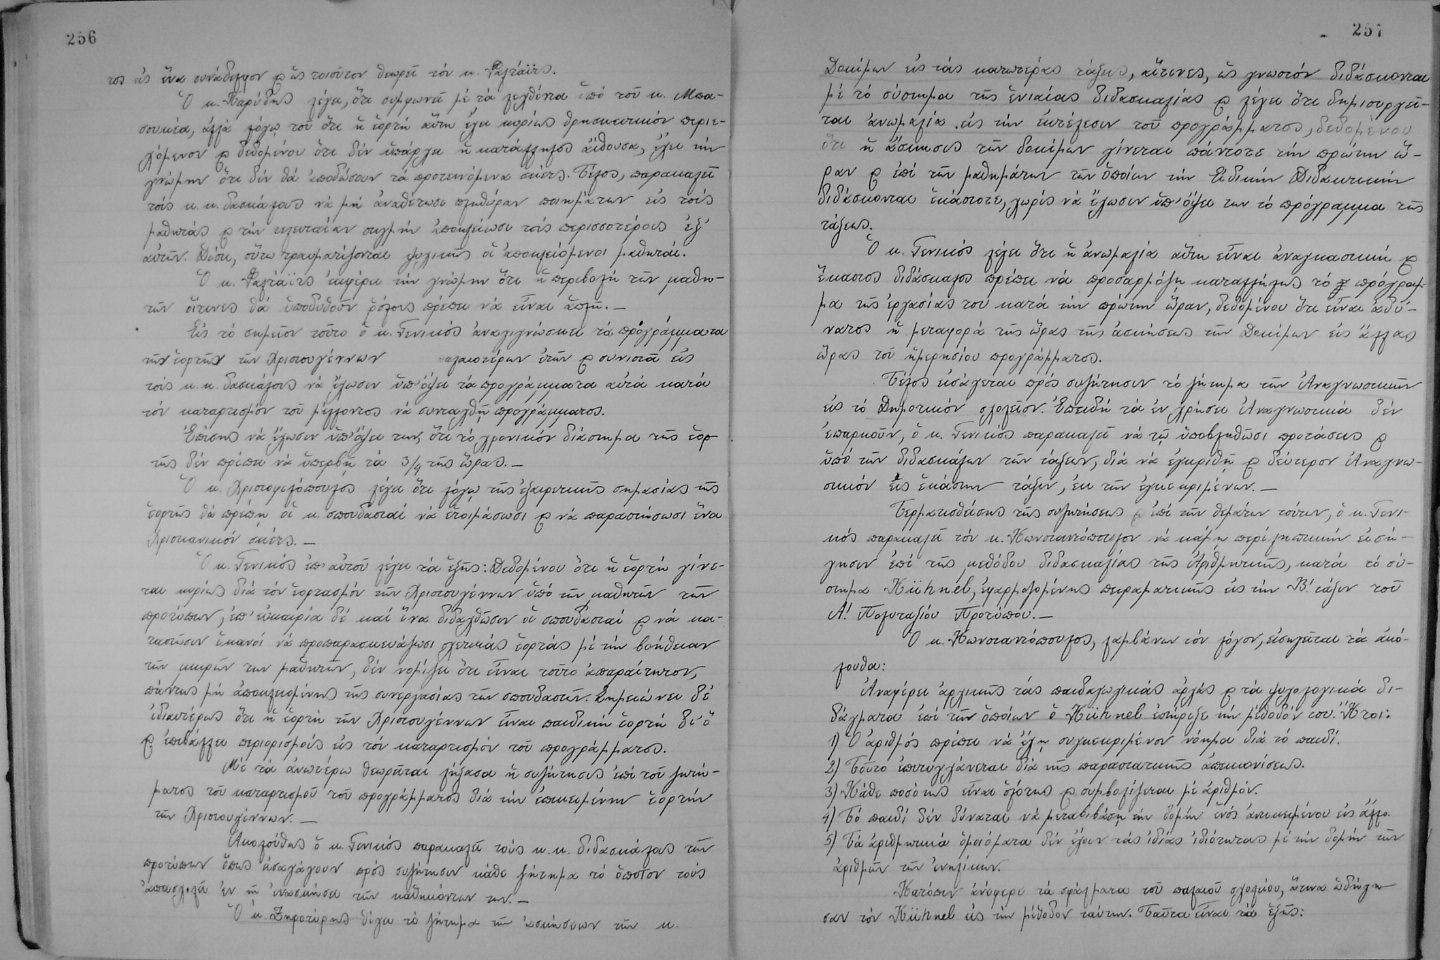 256
τος ὡς ἕνα συνάδελφον & ὡς τοιοῦτον θεωρεῖ τὸν κ. Φαλτάϊτς.
Ὁ κ. Παρύδης λέγει, ὅτι συμφωνεῖ μὲ τὰ λεχθέντα ὑπὸ τοῦ κ. Μπα-
σουκέα, ἀλλὰ λόγῳ τοῦ ὅτι ἡ ἑορτὴ αὕτη ἔχει κυρίως θρησκευτικὸν περιε-
χόμενον & δεδομένου ὅτι δὲν ὑπάρχει ἡ κατάλληλος αἴθουσα, ἔχει τὴν
γνώμην ὅτι δὲν θὰ ἀποδώσουν τὰ προτεινόμενα σκέτς. Τέλος, παρακαλεῖ
τοὺς κ.κ. δασκάλους νὰ μὴ ἀναθέτωσι πληθώραν ποιημάτων εἰς τοὺς
μαθητὰς & τὴν τελευταίαν στιγμὴν ἀποκλείωσι τοὺς περισσοτέρους ἐξ'
αὐτῶν. Διότι, οὕτω τραυματίζονται ψυχικῶς οἱ ἀποκλειόμενοι μαθηταί.
Ὁ κ. Φαλτάϊτς ἐκφέρει τὴν γνώμην ὅτι ἡ περιβολὴ τῶν μαθη-
τῶν οἵτινες θὰ ὑποδυθοῦν ρόλους πρέπει νὰ εἶναι ἁπλῆ. –
Εἰς τὸ σημεῖον τοῦτο ὁ κ. Γενικὸς ἀναγιγνώσκει τὰ προγράμματα
τῶν ἑορτῶν τῶν Χριστουγέννων παλαιοτέρων ἐτῶν & συνιστᾶ εἰς
τοὺς κ.κ. δασκάλους νὰ ἔχωσιν ὑπ' ὄψει τὰ προγράμματα αὐτὰ κατὰ
τὸν καταρτισμὸν τοῦ μέλλοντος νὰ συνταχθῇ προγράμματος.
Ἐπίσης νὰ ἔχωσιν ὑπ' ὄψει των, ὅτι τὸ χρονικὸν διάστημα τῆς ἑορ-
τῆς δὲν πρέπει νὰ ὑπερβῇ τὰ 3/4 τῆς ὥρας. –
Ὁ κ. Χριστοφιλόπουλος λέγει ὅτι λόγῳ τῆς ἐξαιρετικῆς σημασίας τῆς
ἑορτῆς θὰ πρέπῃ οἱ κ. σπουδασταὶ νὰ ἑτοιμάσωσι & νὰ παραστήσωσι ἕνα
Χριστιανικὸν σκέτς. –
Ὁ κ. Γενικὸς ἐπ' αὐτοῦ λέγει τὰ ἑξῆς: Δεδομένου ὅτι ἡ ἑορτὴ γίνε-
ται κυρίως διὰ τὸν ἑορτασμὸν τῶν Χριστουγέννων ὑπὸ τῶν μαθητῶν τῶν
προτύπων, ἐπ' εὐκαιρίᾳ δὲ καὶ ἵνα διδαχθῶσιν οἱ σπουδασταὶ & νὰ κα-
ταστῶσιν ἱκανοὶ νὰ προπαρασκευάζωσι σχετικὰς ἑορτὰς μὲ τὴν βοήθειαν
τῶν μικρῶν των μαθητῶν, δὲν νομίζει ὅτι εἶναι τοῦτο ἀπαραίτητον,
πάντως μὴ ἀποκλειομένης τῆς συνεργασίας τῶν σπουδαστῶν. Σημειώνει δὲ
ἰδιαιτέρως ὅτι ἡ ἑορτὴ τῶν Χριστουγέννων εἶναι παιδικὴ ἑορτὴ δι' ὃ
& ἐπιβάλλει περιορισμοὺς εἰς τὸν καταρτισμὸν τοῦ προγράμματος.
Μὲ τὰ ἀνωτέρω θεωρεῖται λήξασα ἡ συζήτησις ἐπὶ τοῦ ζητή-
ματος τοῦ καταρτισμοῦ τοῦ προγράμματος διὰ τὴν ἐπικειμένην ἑορτὴν
τῶν Χριστουγέννων. –
Ἀκολούθως ὁ κ. Γενικὸς παρακαλεῖ τοὺς κ.κ. διδασκάλους τῶν
προτύπων ὅπως εἰσαγάγουν πρὸς συζήτησιν κάθε ζήτημα τὸ ὁποῖον τοὺς
ἀπασχολεῖ ἐν τῇ ἐνασκήσει τῶν καθηκόντων των. –
Ὁ κ. Ξηροτύρης θέτει τὸ ζήτημα τῶν ἀσκήσεων τῶν κ.
257
Δοκίμων εἰς τὰς κατωτέρας τάξεις, αἵτινες, ὡς γνωστὸν διδάσκονται
μὲ τὸ σύστημα τῆς ἑνιαίας διδασκαλίας & λέγει ὅτι δημιουργεῖ-
ται ἀνωμαλία εἰς τὴν ἐκτέλεσιν τοῦ προγράμματος, δεδομένου
ὅτι ἡ ἄσκησις τῶν δοκίμων γίνεται πάντοτε τὴν πρώτην ὥ-
ραν & ἐπὶ τῶν μαθημάτων τῶν ὁποίων τὴν Εἰδικὴν Διδακτικὴν
διδάσκονται ἑκάστοτε, χωρὶς νὰ ἔχωσιν ὑπ' ὄψει των τὸ πρόγραμμα τῆς
τάξεως.
Ὁ κ. Γενικὸς λέγει ὅτι ἡ ἀνωμαλία αὕτη εἶναι ἀναγκαστικὴ &
ἕκαστος διδάσκαλος πρέπει νὰ προσαρμόζῃ καταλλήλως τὸ πρόγραμ-
μα τῆς ἐργασίας του κατὰ τὴν πρώτην ὥραν, δεδομένου ὅτι εἶναι ἀδύ-
νατος ἡ μεταφορὰ τῆς ὥρας τῆς ἀσκήσεως τῶν Δοκίμων εἰς ἄλλας
ὥρας τοῦ ἡμερησίου προγράμματος.
Τέλος εἰσάγεται πρὸς συζήτησιν τὸ ζήτημα τῶν Ἀναγνωστικῶν
εἰς τὸ Δημοτικὸν σχολεῖον. Ἐπειδὴ τὰ ἐν χρήσει Ἀναγνωστικὰ δὲν
ἐπαρκοῦν, ὁ κ. Γενικὸς παρακαλεῖ νὰ τῷ ὑποβληθῶσι προτάσεις &
ὑπὸ τῶν διδασκάλων τῶν τάξεων, διὰ νὰ ἐγκριθῇ & δεύτερον Ἀναγνω-
στικὸν εἰς ἑκάστην τάξιν, ἐκ τῶν ἐγκεκριμένων. –
Τερματισθείσης τῆς συζητήσεως & ἐπὶ τῶν θεμάτων τούτων, ὁ κ. Γενι-
κὸς παρακαλεῖ τὸν κ. Κωνσταντόπουλον νὰ κάμῃ περιληπτικὴν εἰσή-
γησιν ἐπὶ τῆς μεθόδου διδασκαλίας τῆς Ἀριθμητικῆς, κατὰ τὸ σύ-
στημα Kühnel, ἐφαρμοζομένης πειραματικῶς εἰς τὴν Β΄ τάξιν τοῦ
Α΄. Πολυταξίου Προτύπου. –
Ὁ κ. Κωνσταντόπουλος, λαμβάνων τὸν λόγον, εἰσηγεῖται τὰ ἀκό-
λουθα:
Ἀναφέρει ἀρχικῶς τὰς παιδαγωγικὰς ἀρχὰς & τὰ ψυχολογικὰ δι-
δάγματα ἐπὶ τῶν ὁποίων ὁ Kühnel ἐστήριξε τὴν μέθοδόν του. Ἤτοι:
1) Ὁ ἀριθμὸς πρέπει νὰ ἔχῃ συγκεκριμένον νόημα διὰ τὸ παιδί.
2) Τοῦτο ἐπιτυγχάνεται διὰ τῆς παραστατικῆς ἀπεικονίσεως.
3) Κάθε ποσότης εἶναι ὁλότης & συμβολίζεται μὲ ἀριθμόν.
4) Τὸ παιδὶ δὲν δύναται νὰ μεταβιβάσῃ τὴν δομὴν ἑνὸς ἀντικειμένου εἰς ἄλλο.
5) Τὰ ἀριθμητικὰ ὁμοιώματα δὲν ἔχουν τὰς ἰδίας ἰδιότητας μὲ τὴν δομὴν τῶν
ἀριθμῶν τῶν ἐνηλίκων.
Κατόπιν ἀναφέρει τὰ σφάλματα τοῦ παλαιοῦ σχολείου, ἅτινα ὡδήγη-
σαν τὸν Kühnel εἰς τὴν μέθοδον ταύτην. Ταῦτα εἶναι τὰ ἑξῆς: